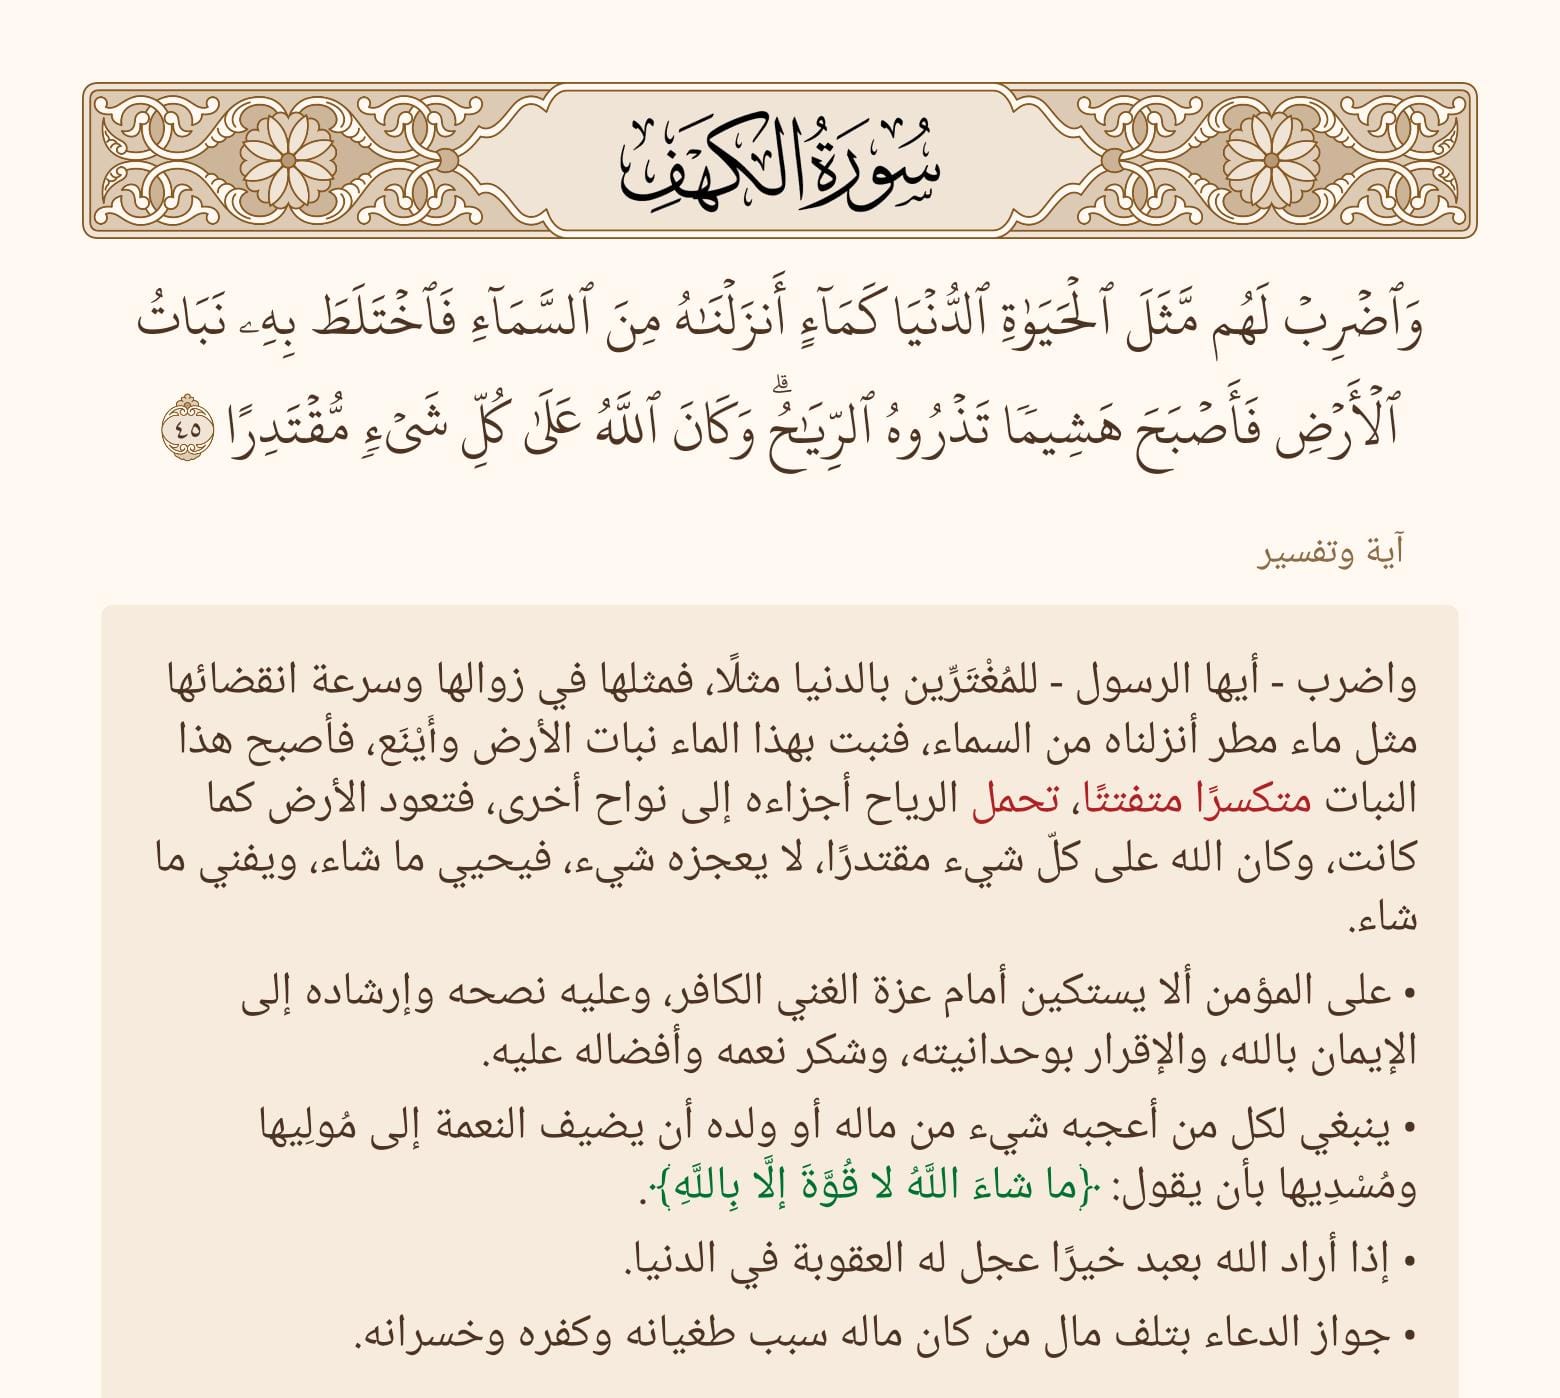 سُورَةُ الكَهْفِ
وَٱضۡرِبۡ لَهُم مَّثَلَ ٱلۡحَيَوٰةِ ٱلدُّنۡيَا كَمَآءٍ أَنزَلۡنَٰهُ مِنَ ٱلسَّمَآءِ فَٱخۡتَلَطَ بِهِۦ نَبَاتُ
ٱلۡأَرۡضِ فَأَصۡبَحَ هَشِيمٗا تَذۡرُوهُ ٱلرِّيَٰحُۗ وَكَانَ ٱللَّهُ عَلَىٰ كُلِّ شَيۡءٖ مُّقۡتَدِرًا ٤٥
آية وتفسير
واضرب - أيها الرسول - للمُغْتَرِّين بالدنيا مثلًا، فمثلها في زوالها وسرعة انقضائها
مثل ماء مطر أنزلناه من السماء، فنبت بهذا الماء نبات الأرض وأَيْنَع، فأصبح هذا
النبات متكسرًا متفتتًا، تحمل الرياح أجزاءه إلى نواح أخرى، فتعود الأرض كما
كانت، وكان الله على كلّ شيء مقتدرًا، لا يعجزه شيء، فيحيي ما شاء، ويفني ما
شاء.
• على المؤمن ألا يستكين أمام عزة الغني الكافر، وعليه نصحه وإرشاده إلى
الإيمان بالله، والإقرار بوحدانيته، وشكر نعمه وأفضاله عليه.
• ينبغي لكل من أعجبه شيء من ماله أو ولده أن يضيف النعمة إلى مُولِيها
ومُسْدِيها بأن يقول: ﴿ما شاءَ اللَّهُ لا قُوَّةَ إلَّا بِاللَّهِ﴾.
• إذا أراد الله بعبد خيرًا عجل له العقوبة في الدنيا.
• جواز الدعاء بتلف مال من كان ماله سبب طغيانه وكفره وخسرانه.